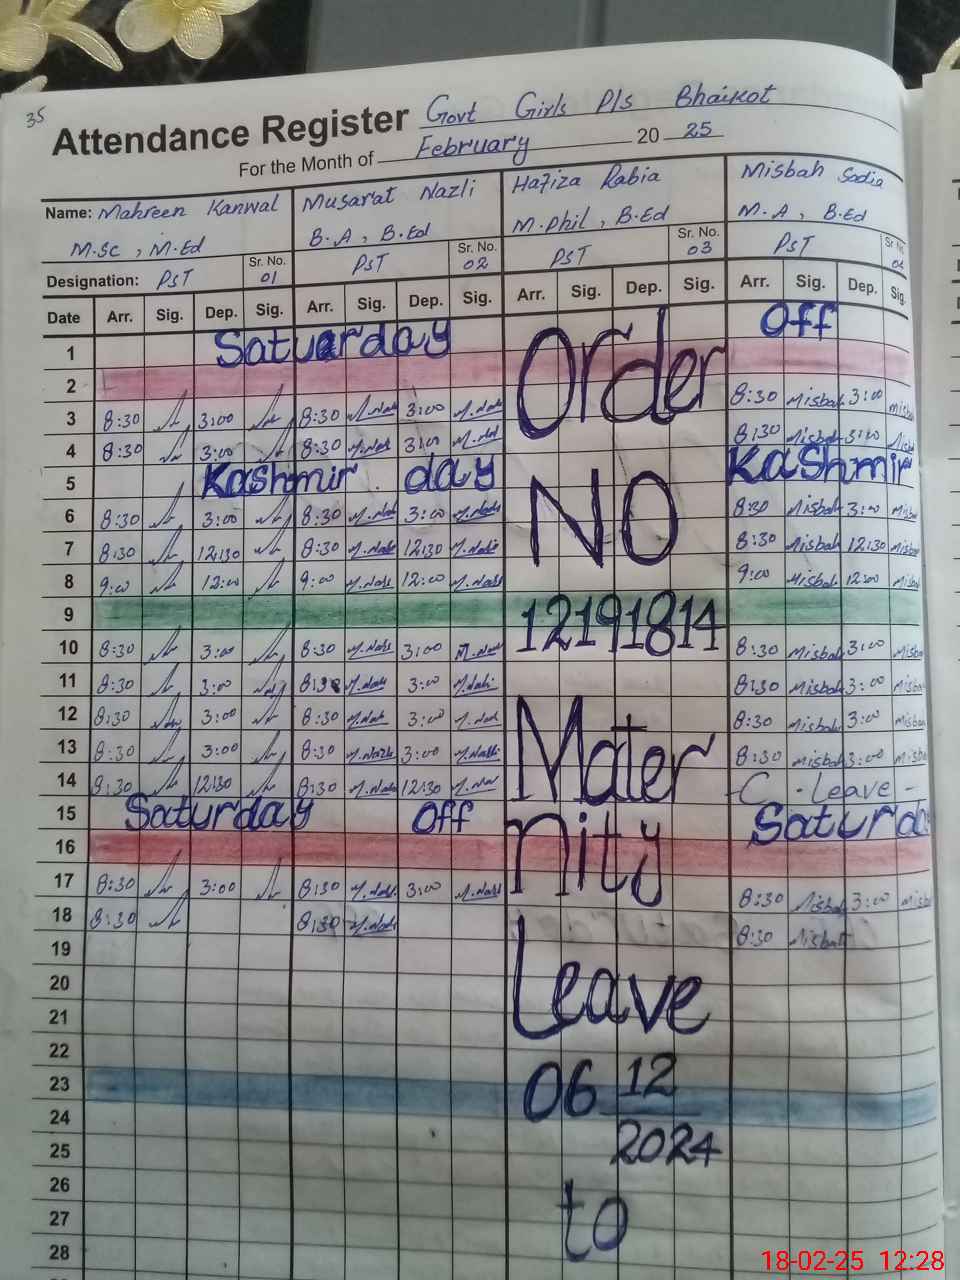 35
Attendance Register Govt Girls P/s Bhaikot
For the Month of February 20 25
Name: Mahreen Kanwal Musarat Nazli Hafiza Rabia Misbah Sadia
M.Sc , M.Ed B.A , B.Ed M.Phil , B.Ed M.A , B.Ed
Designation: PST Sr. No. 01 PST Sr. No. 02 PST Sr. No. 03 PST Sr. No. 04
Date Arr. Sig. Dep. Sig. Arr. Sig. Dep. Sig. Arr. Sig. Dep. Sig. Arr. Sig. Dep. Sig.
1 Saturday Off
2
3 8:30 3:00 8:30 3:00 8:30 Misbah 3:00 misba
4 8:30 3:00 8:30 3:00 8:30 Misbah 3:00
5 Kashmir day Kashmir
6 8:30 3:00 8:30 3:00 8:30 Misbah 3:00
7 8:30 12:30 8:30 12:30 8:30 Misbah 12:30 misba
8 9:00 12:00 9:00 12:00 9:00 Misbah 12:00 misba
9
10 8:30 3:00 8:30 3:00 8:30 Misbah 3:00 misba
11 8:30 3:00 8:30 3:00 8:30 Misbah 3:00 misba
12 8:30 3:00 8:30 3:00 8:30 Misbah 3:00 misba
13 8:30 3:00 8:30 3:00 8:30 Misbah 3:00 misba
14 8:30 12:30 8:30 12:30 - C - Leave -
15 Saturday Off Saturda
16
17 8:30 3:00 8:30 3:00 8:30 Misbah 3:00 misba
18 8:30 8:30 8:30 Misbah
19
20
21
22
23
24
25
26
27
28
Order
NO
12191814
Mater
nity
Leave
06 12
2024
to
18-02-25 12:28